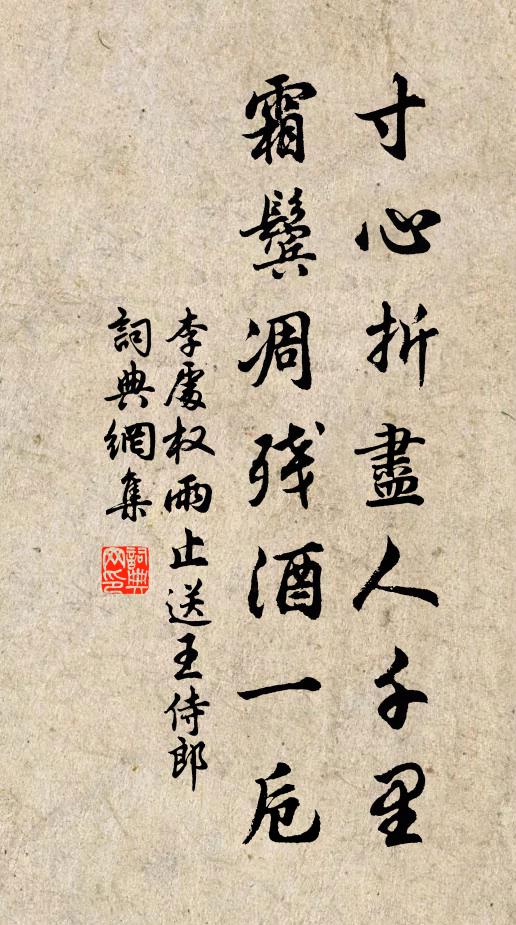 寸心折盡人千里
霜鬢凋残酒一卮
李處权雨止送王侍郎
詞典網集
詞典网印